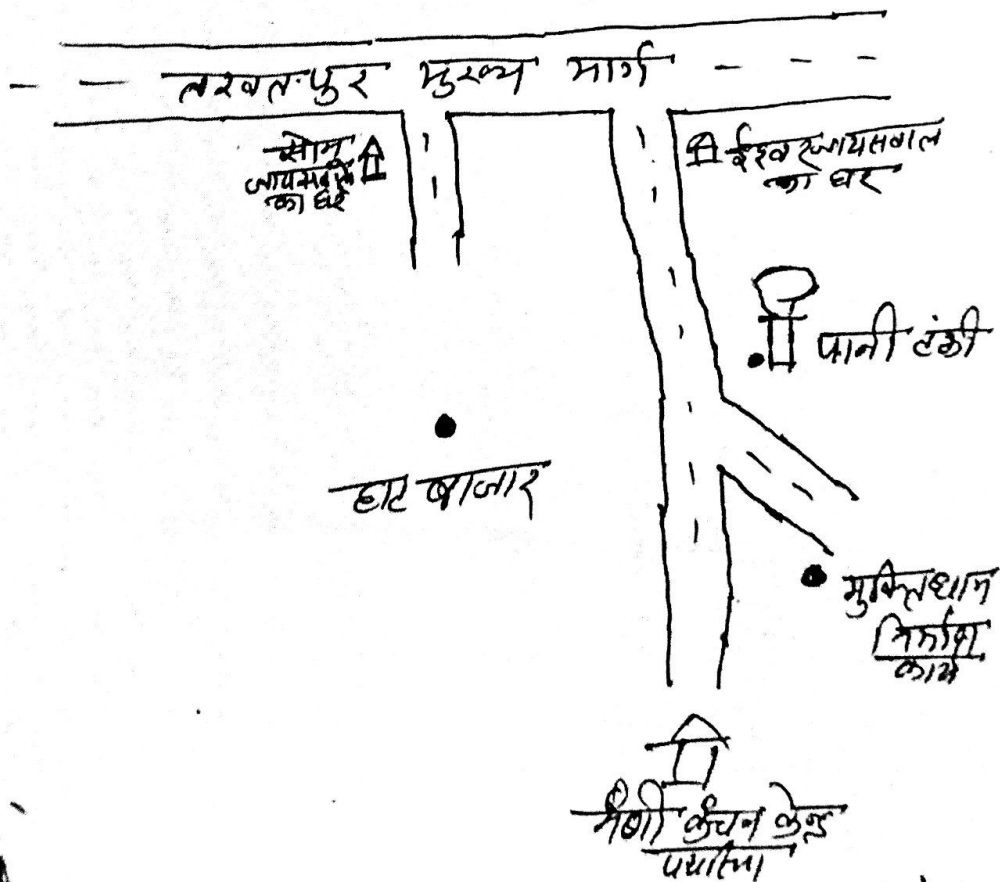 तखतपुर मुख्य मार्ग
सोनू
जायसवाल
का घर
ईश्वर जायसवाल
का घर
पानी टंकी
हाट बाजार
मुक्तिधाम
निर्माण
कार्य
कंचन केन्द्र